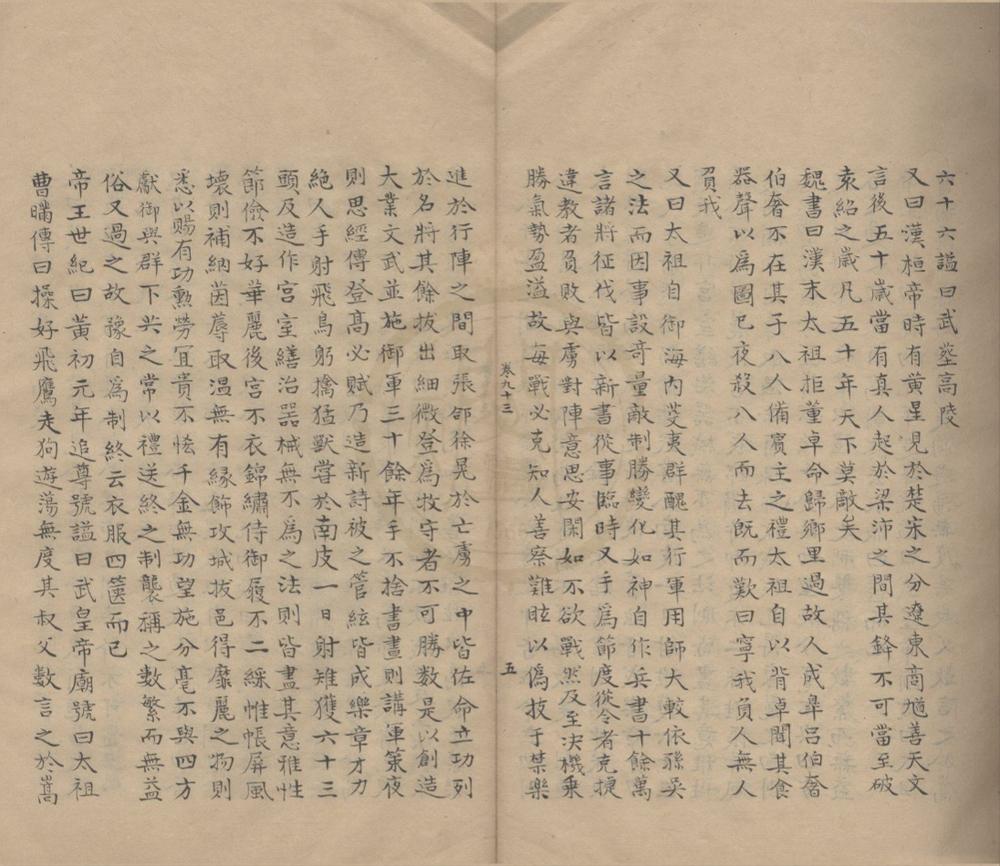 六十六謚曰武葬高陵
又曰漢桓帝時有黄星見於楚宋之分遼東商馗善天文
言後五十歲當有真人起於梁沛之間其鋒不可當至破
袁紹之歲凡五十年天下莫敵矣
魏書曰漢末太祖拒董卓命歸鄉里過故人成臯呂伯奢
伯奢不在其子八人備賓主之禮太祖自以背卓聞其食
器聲以爲圖已夜殺八人而去既而歎曰寧我負人無人
負我
又曰太祖自御海内芟夷群醜其行軍用師大較依孫吳
之法而因事設竒量敵制勝變化如神自作兵書十餘萬
言諸將征伐皆以新書從事臨時又手爲節度從令者克捷
違教者負敗與虜對陣意思安閑如不欲戰然及至决機乗
勝氣勢盈溢故每戰必克知人善察難眩以僞技于禁樂
卷九十三
五
進於行陣之間取張郃徐晃於亡虜之中皆佐命立功列
於名將其餘拔出細微登爲牧守者不可勝数是以創造
大業文武並施御軍三十餘年手不捨書晝則講軍策夜
則思經傳登髙必賦乃造新詩被之管絃皆成樂章才力
絶人手射飛鳥躬擒猛獸嘗於南皮一日射雉獲六十三
頭及造作宫室繕治器械無不爲之法則皆盡其意雅性
節儉不好華麗後宫不衣錦繡侍御履不二綵帷帳屏風
壞則補納茵蓐取温無有縁飾攻城拔邑得靡麗之物則
悉以賜有功勲勞宜貴不恡千金無功望施分毫不與四方
獻御與群下共之常以禮送終之制襲稱之數繁而無益
俗又過之故豫自爲制終云衣服四篋而已
帝王世紀曰黄初元年追尊號謚曰武皇帝廟號曰太祖
曹瞞傳曰操好飛鷹走狗遊蕩無度其叔父數言之於嵩